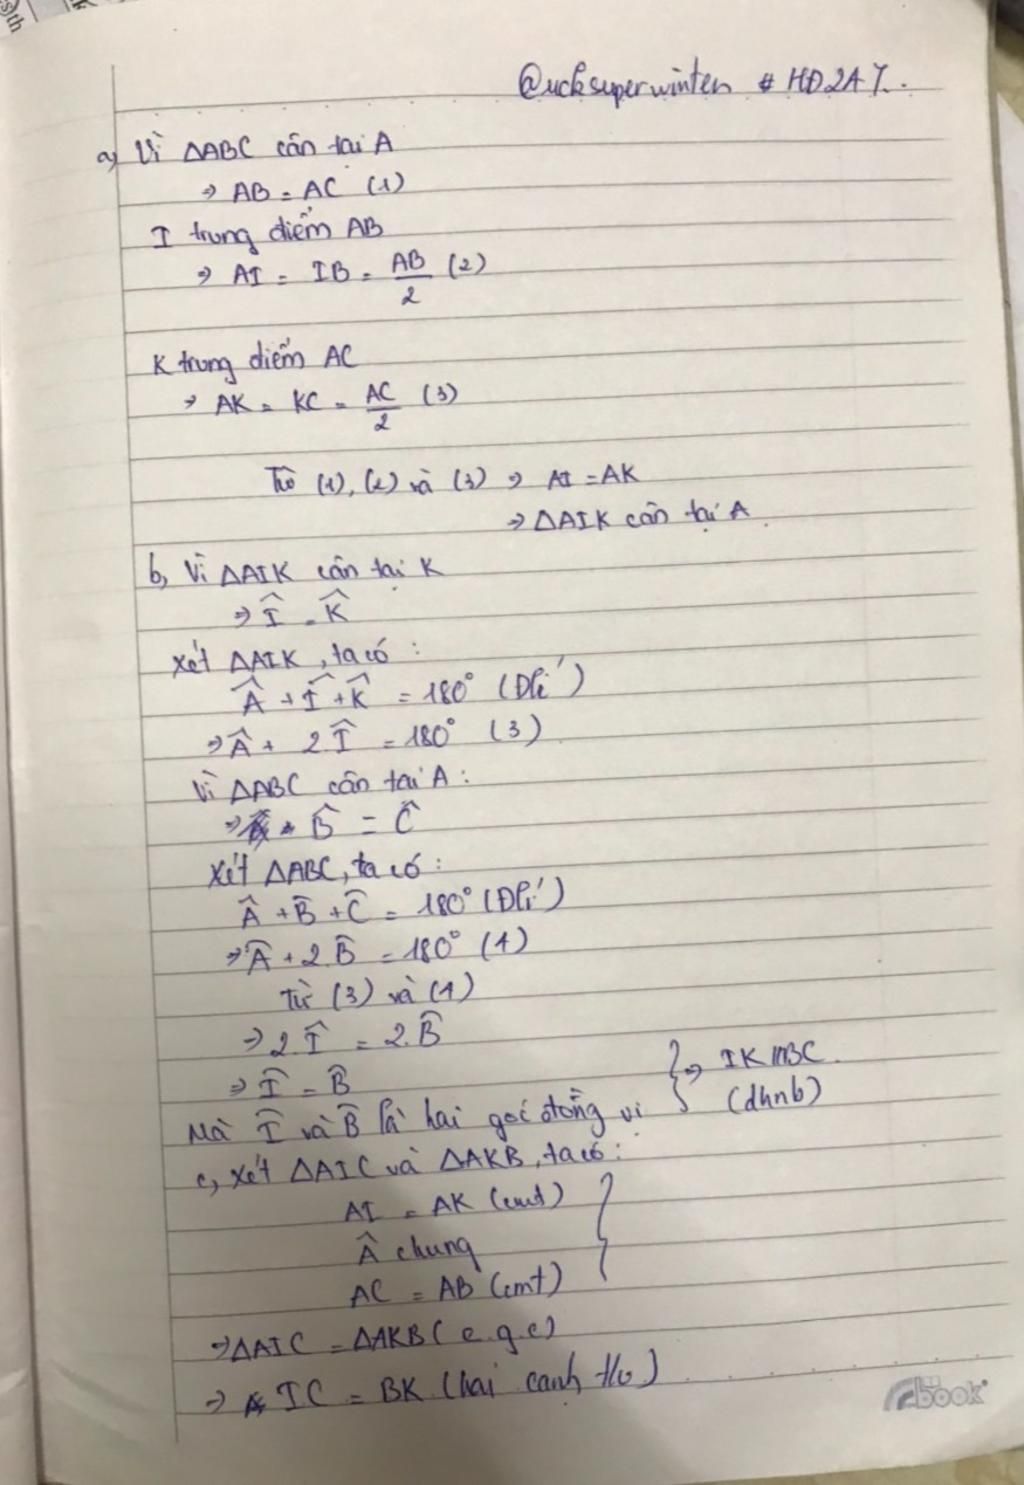 @ucksuperwinter # HD247.
a, Vì ΔABC cân tại A
⇒ AB = AC (1)
I trung điểm AB
⇒ AI = IB = AB/2 (2)
K trung điểm AC
⇒ AK = KC = AC/2 (3)
Từ (1), (2) và (3) ⇒ AI = AK
⇒ ΔAIK cân tại A
b, Vì ΔAIK cân tại K
⇒ Î = K̂
Xét ΔAIK, ta có :
Â + Î + K̂ = 180° (Đlí)
⇒ Â + 2.Î = 180° (3)
Vì ΔABC cân tại A :
⇒ B̂ = Ĉ
Xét ΔABC, ta có :
Â + B̂ + Ĉ = 180° (Đlí)
⇒ Â + 2.B̂ = 180° (4)
Từ (3) và (4)
⇒ 2.Î = 2.B̂
⇒ Î = B̂
Mà Î và B̂ là hai góc đồng vị } ⇒ IK // BC.
(dhnb)
c, Xét ΔAIC và ΔAKB, ta có :
AI = AK (cmt)
Â chung
AC = AB (cmt) }
⇒ ΔAIC = ΔAKB (c.g.c)
⇒ IC = BK (hai cạnh t/ư)
book